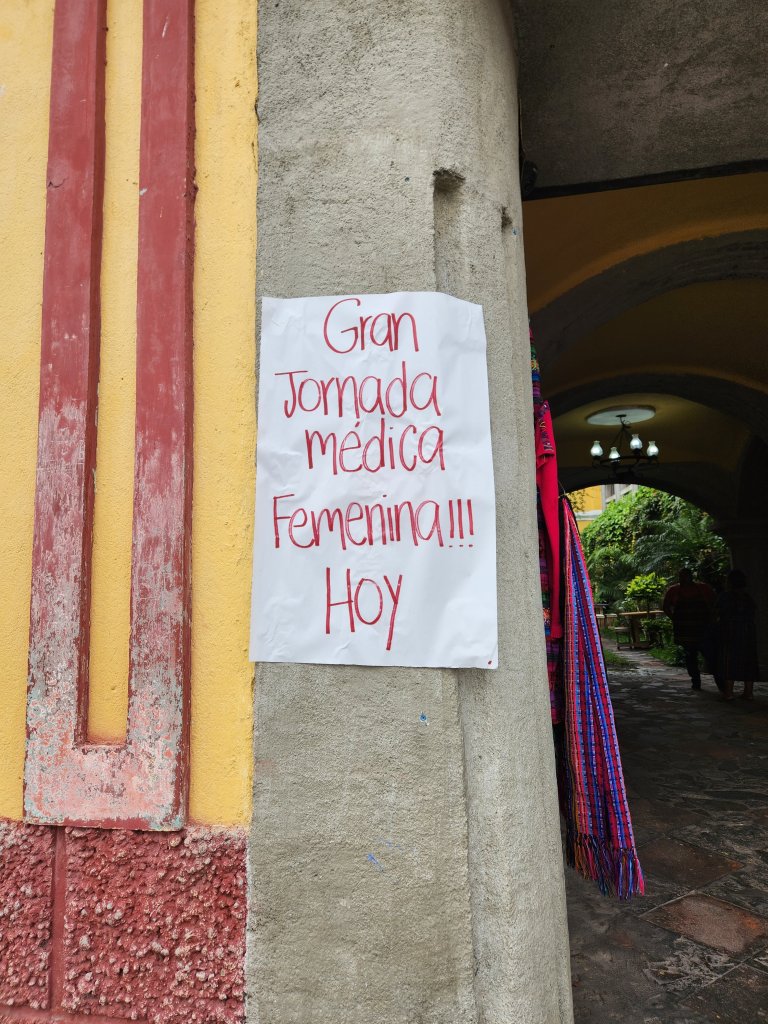 Gran
Jornada
médica
Femenina!!!
Hoy